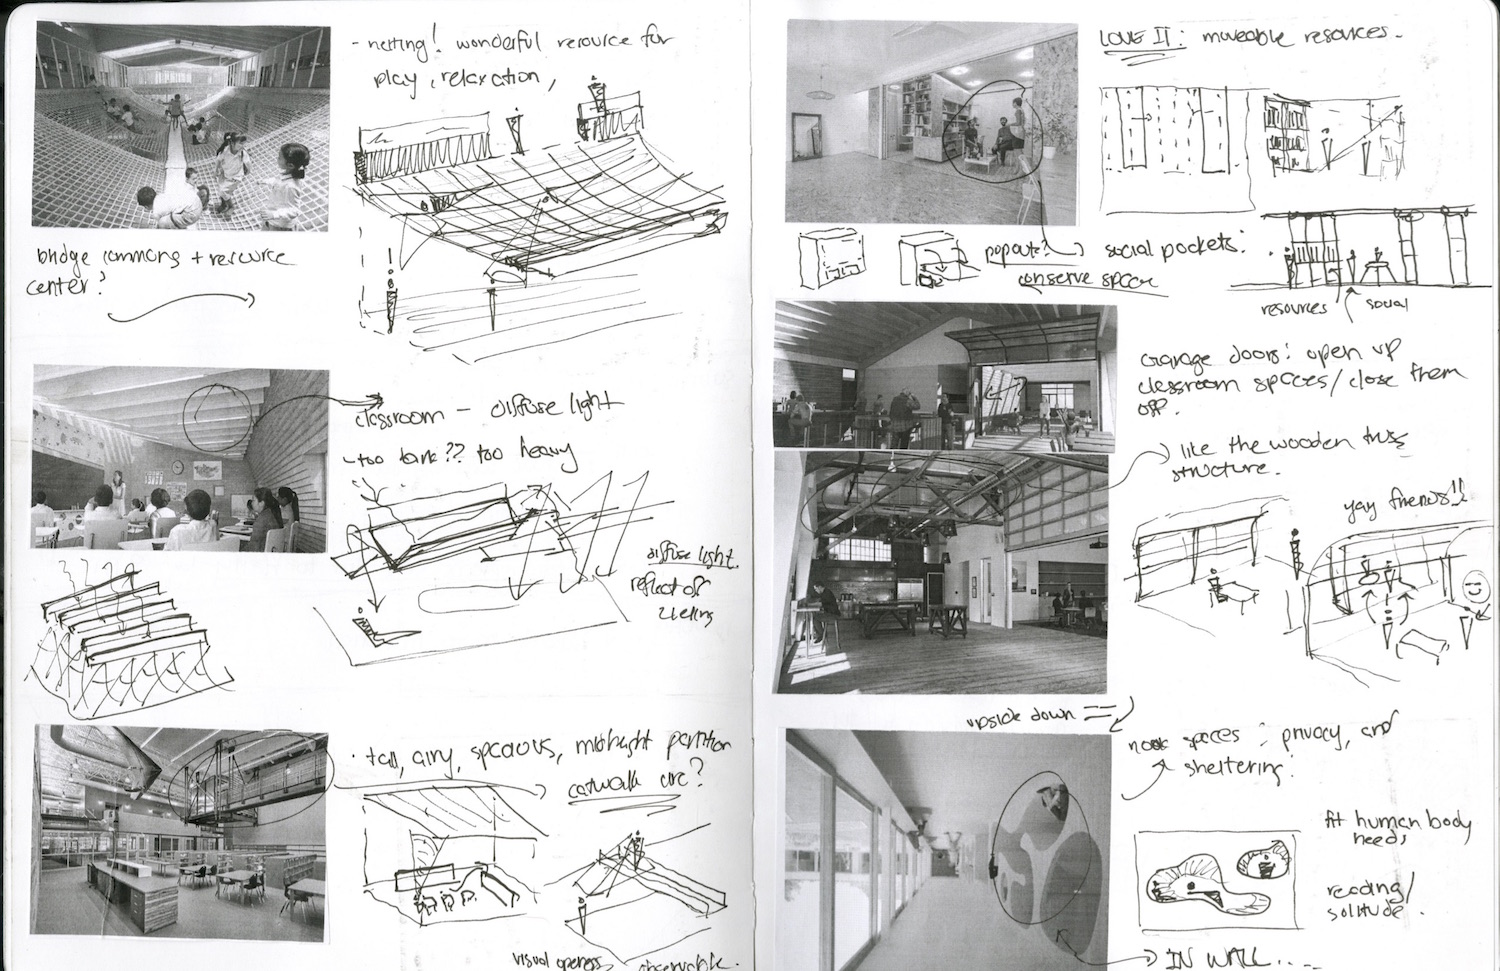 - netting! wonderful resource for
play, relaxation,
bridge commons + resource
center?
classroom - diffuse light
too dark?? too heavy
diffuse light.
reflect off
ceiling
tall, airy, spacious, midheight partition
catwalk circ?
visual openness
observable.
LOVE IT: moveable resources.
popouts?
conserve space
social pockets:
resources
social
Garage doors: open up
classroom spaces/close them
off.
like the wooden truss
structure.
yay friends!!
upside down
nook spaces: privacy, and
sheltering.
fit human body
needs
reading/
solitude.
IN WALL....